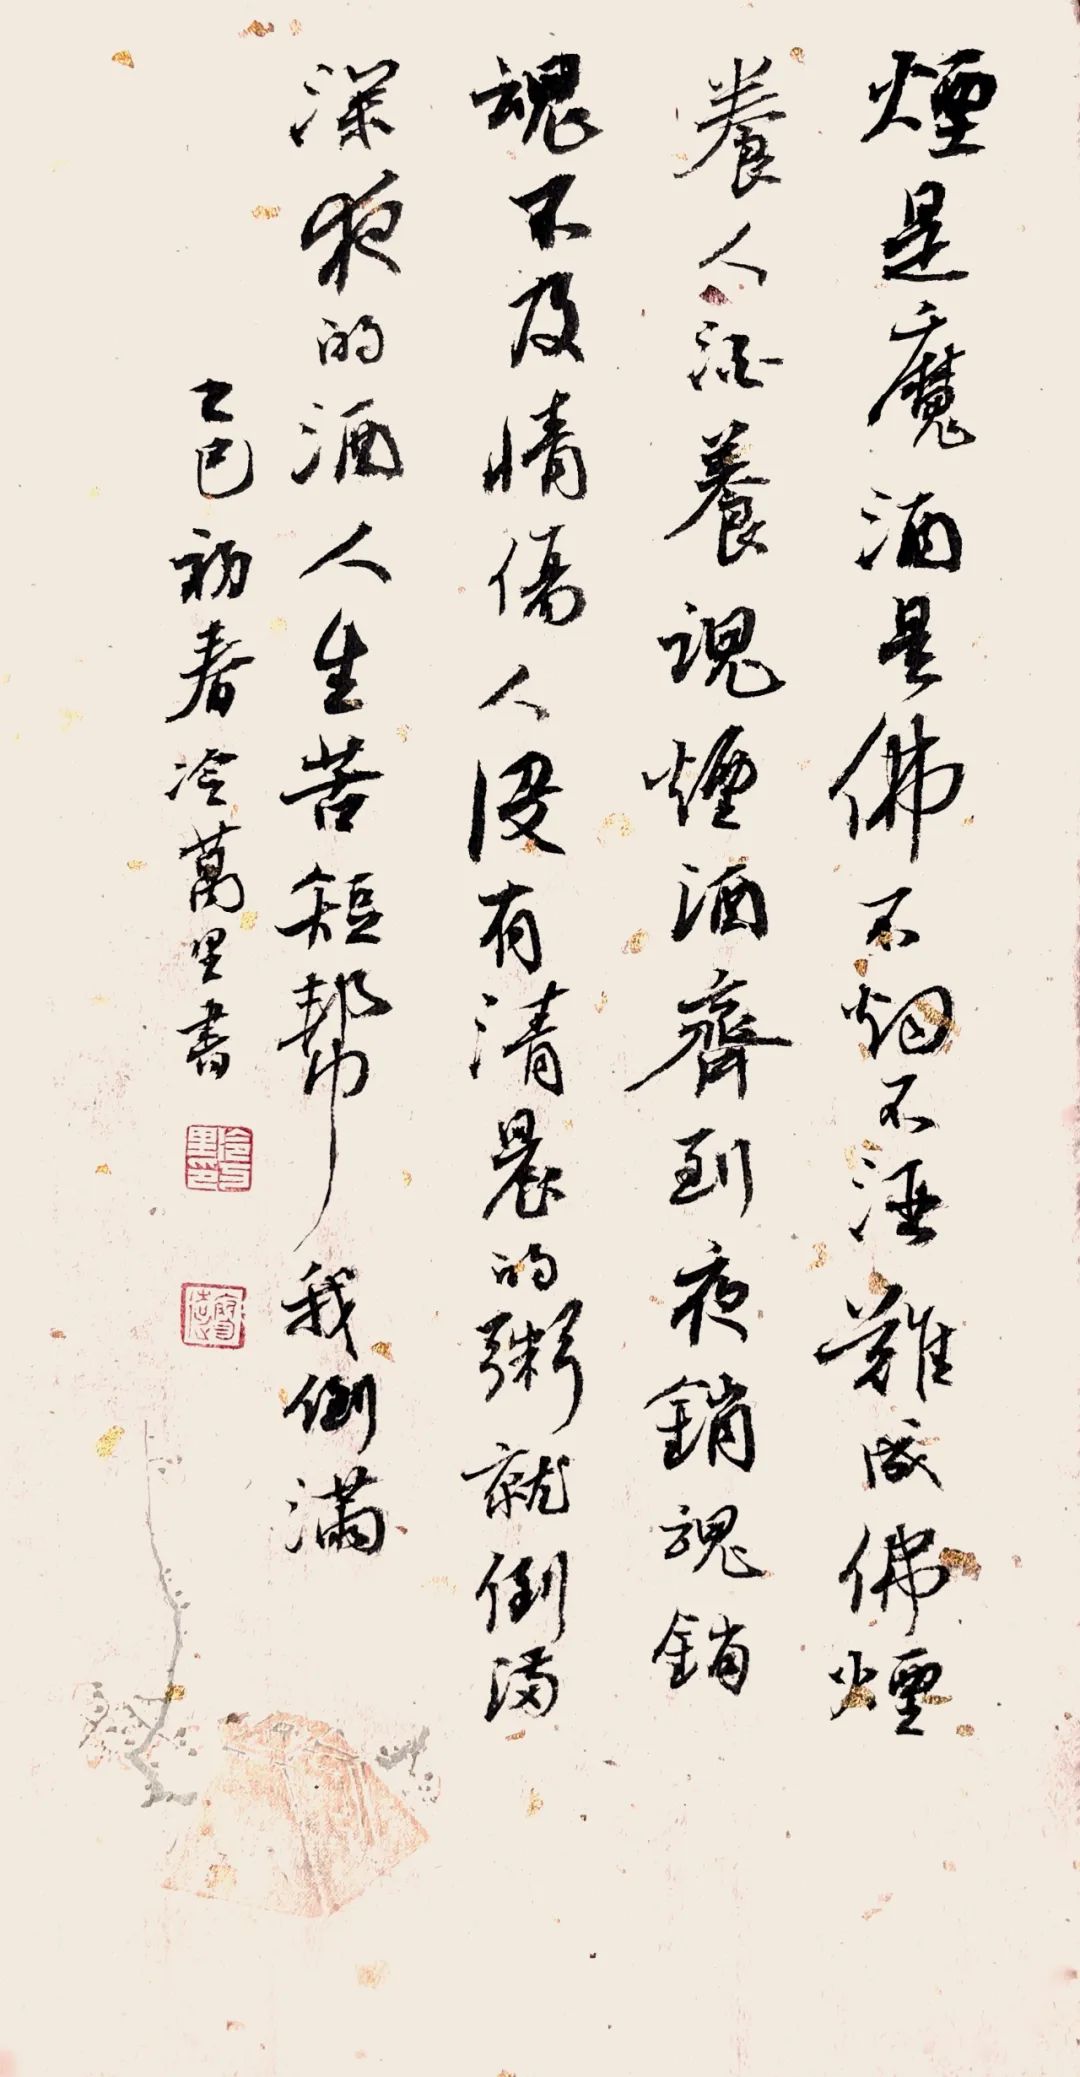 煙是魔酒是佛不烟不酒難成佛煙
養人酒養魂煙酒齊到夜銷魂銷
魂不及情傷人沒有清晨的粥就倒滿
深夜的酒人生苦短幫我倒滿
乙巳初春冷萬里書